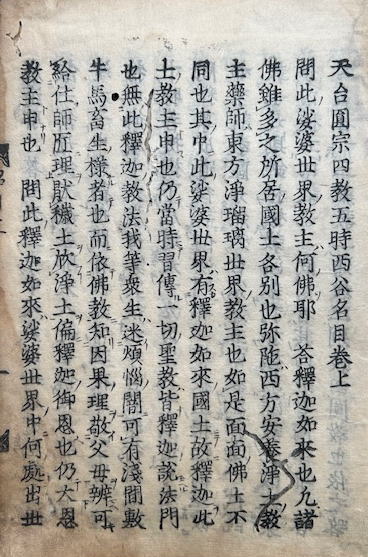 天台圓宗四教五時西谷名目卷上
問此娑婆世界教主何佛耶　荅釋迦如來也九諸
佛雖多之所居國土各別也弥陁西方安養淨土教
主藥師東方淨瑠璃世界教主也如是面面佛土不
同也其中此娑婆世界有釋迦如來國土故釋迦此
土教主申也仍當時習傳一切聖教皆釋迦說法門
也無此釋迦教法我等衆生迷煩惱闇可有淺間敷
牛馬畜生様者也而依佛教知因果理敬父母辨可
給仕師匠理猒穢土欣淨土偏釋迦御恩也仍大恩
教主申也　問此釋迦如來娑婆世界中何處出世